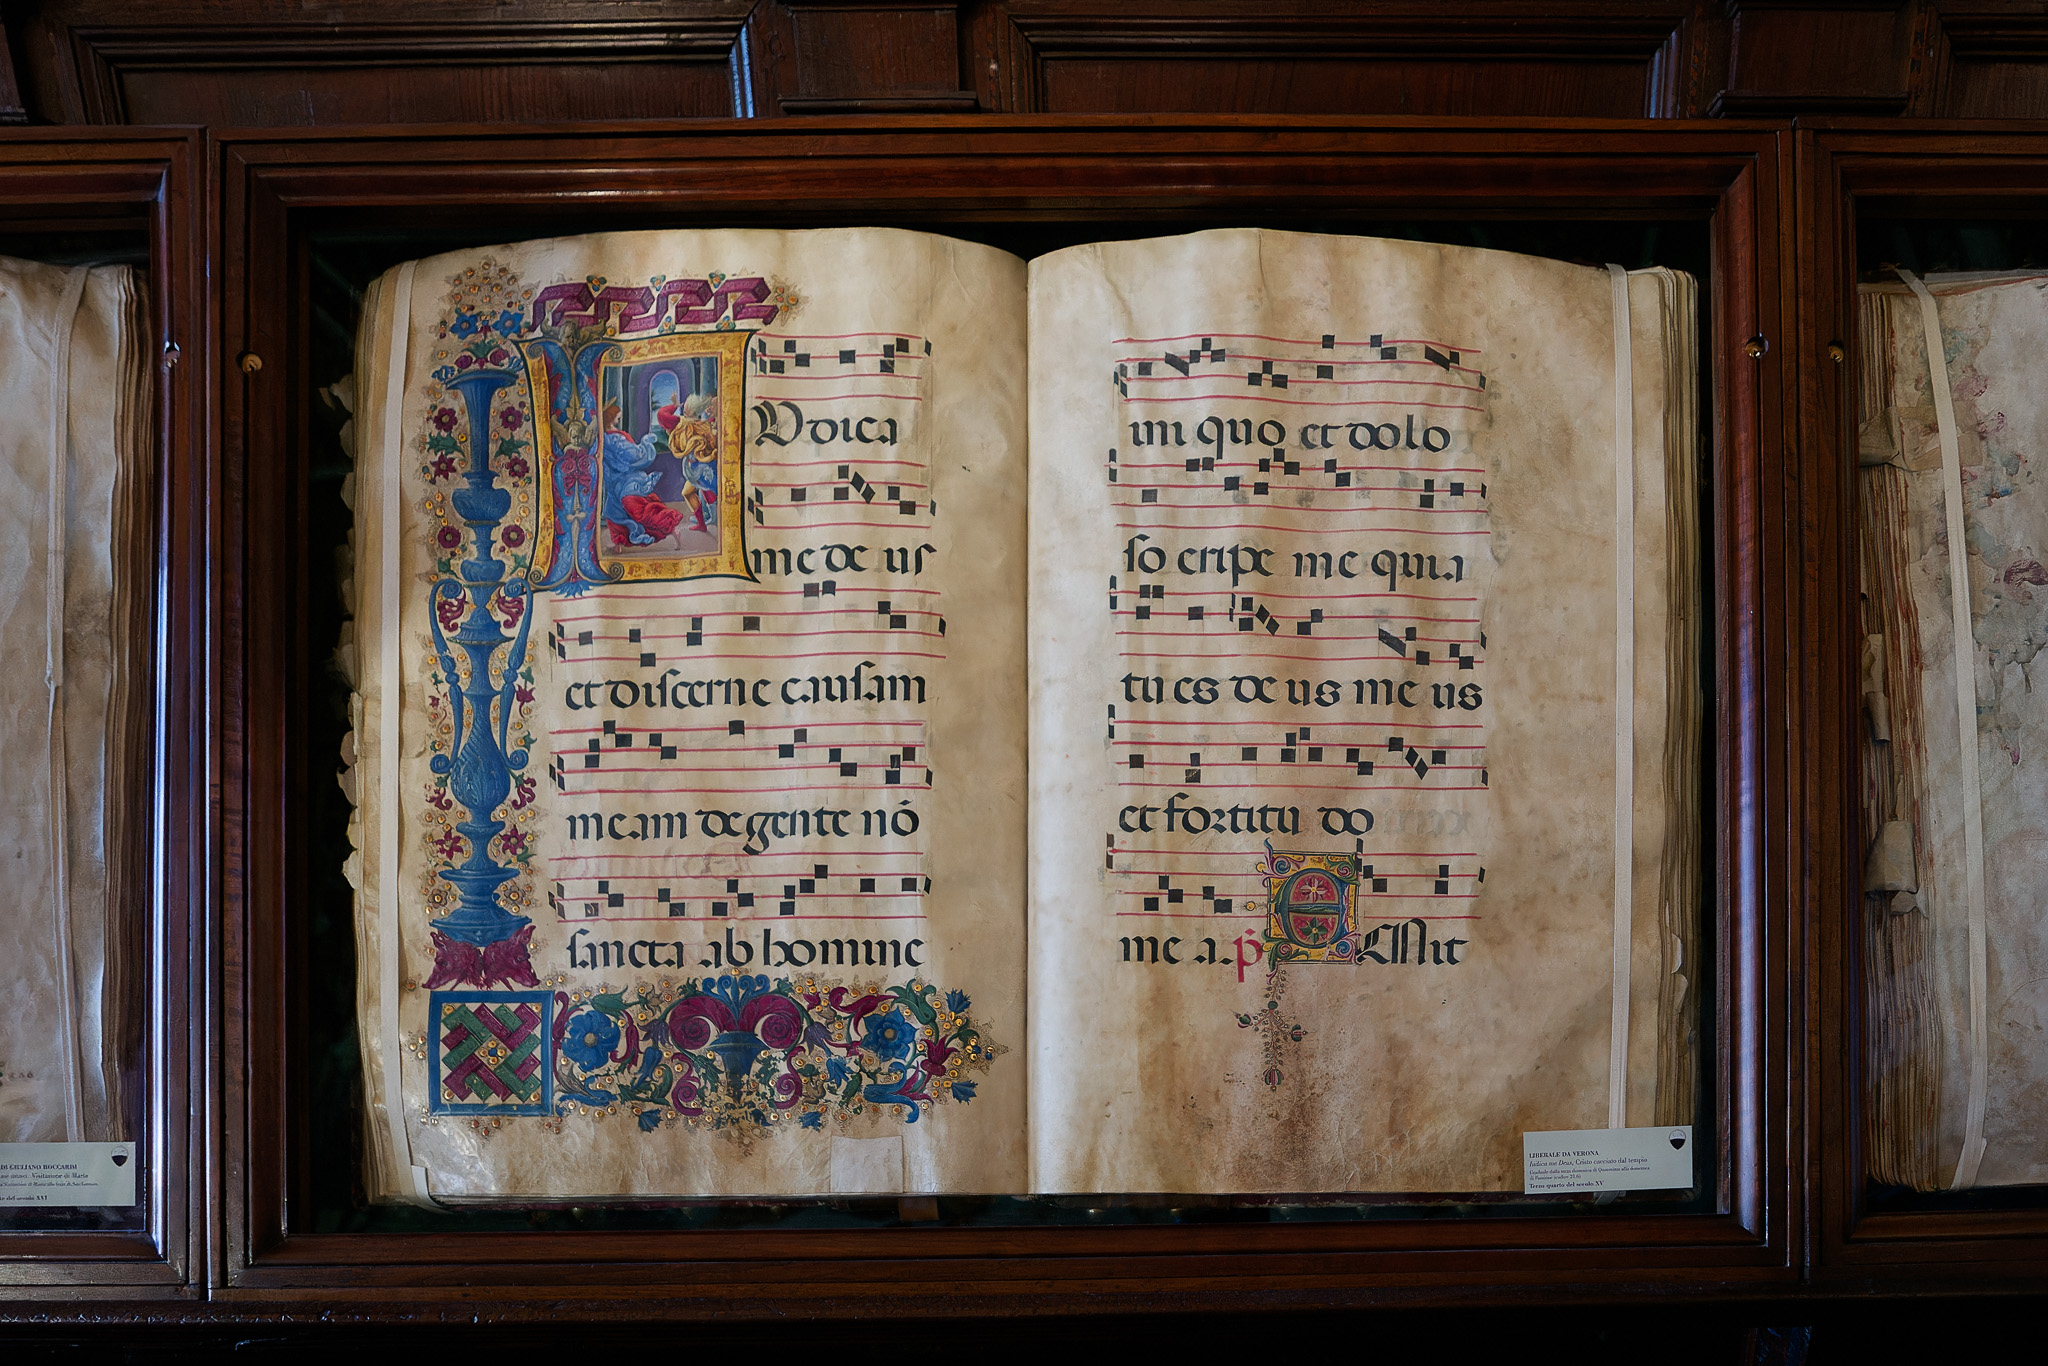 IVdica
me de us
et discerne causam
meam de gente nō
sancta ab homine
ini quo et dolo
so eripe me quia
tu es de us me us
et fortitu do
me a. p̄ EMit
DI GIULIANO BOCCARDI
Visitazione di Maria
del secolo XVI
LIBERALE DA VERONA
Iudica me Deus, Cristo cacciato dal tempio
Graduale dalla terza domenica di Quaresima alla domenica
di Passione (codice 21.6)
Terzo quarto del secolo XV